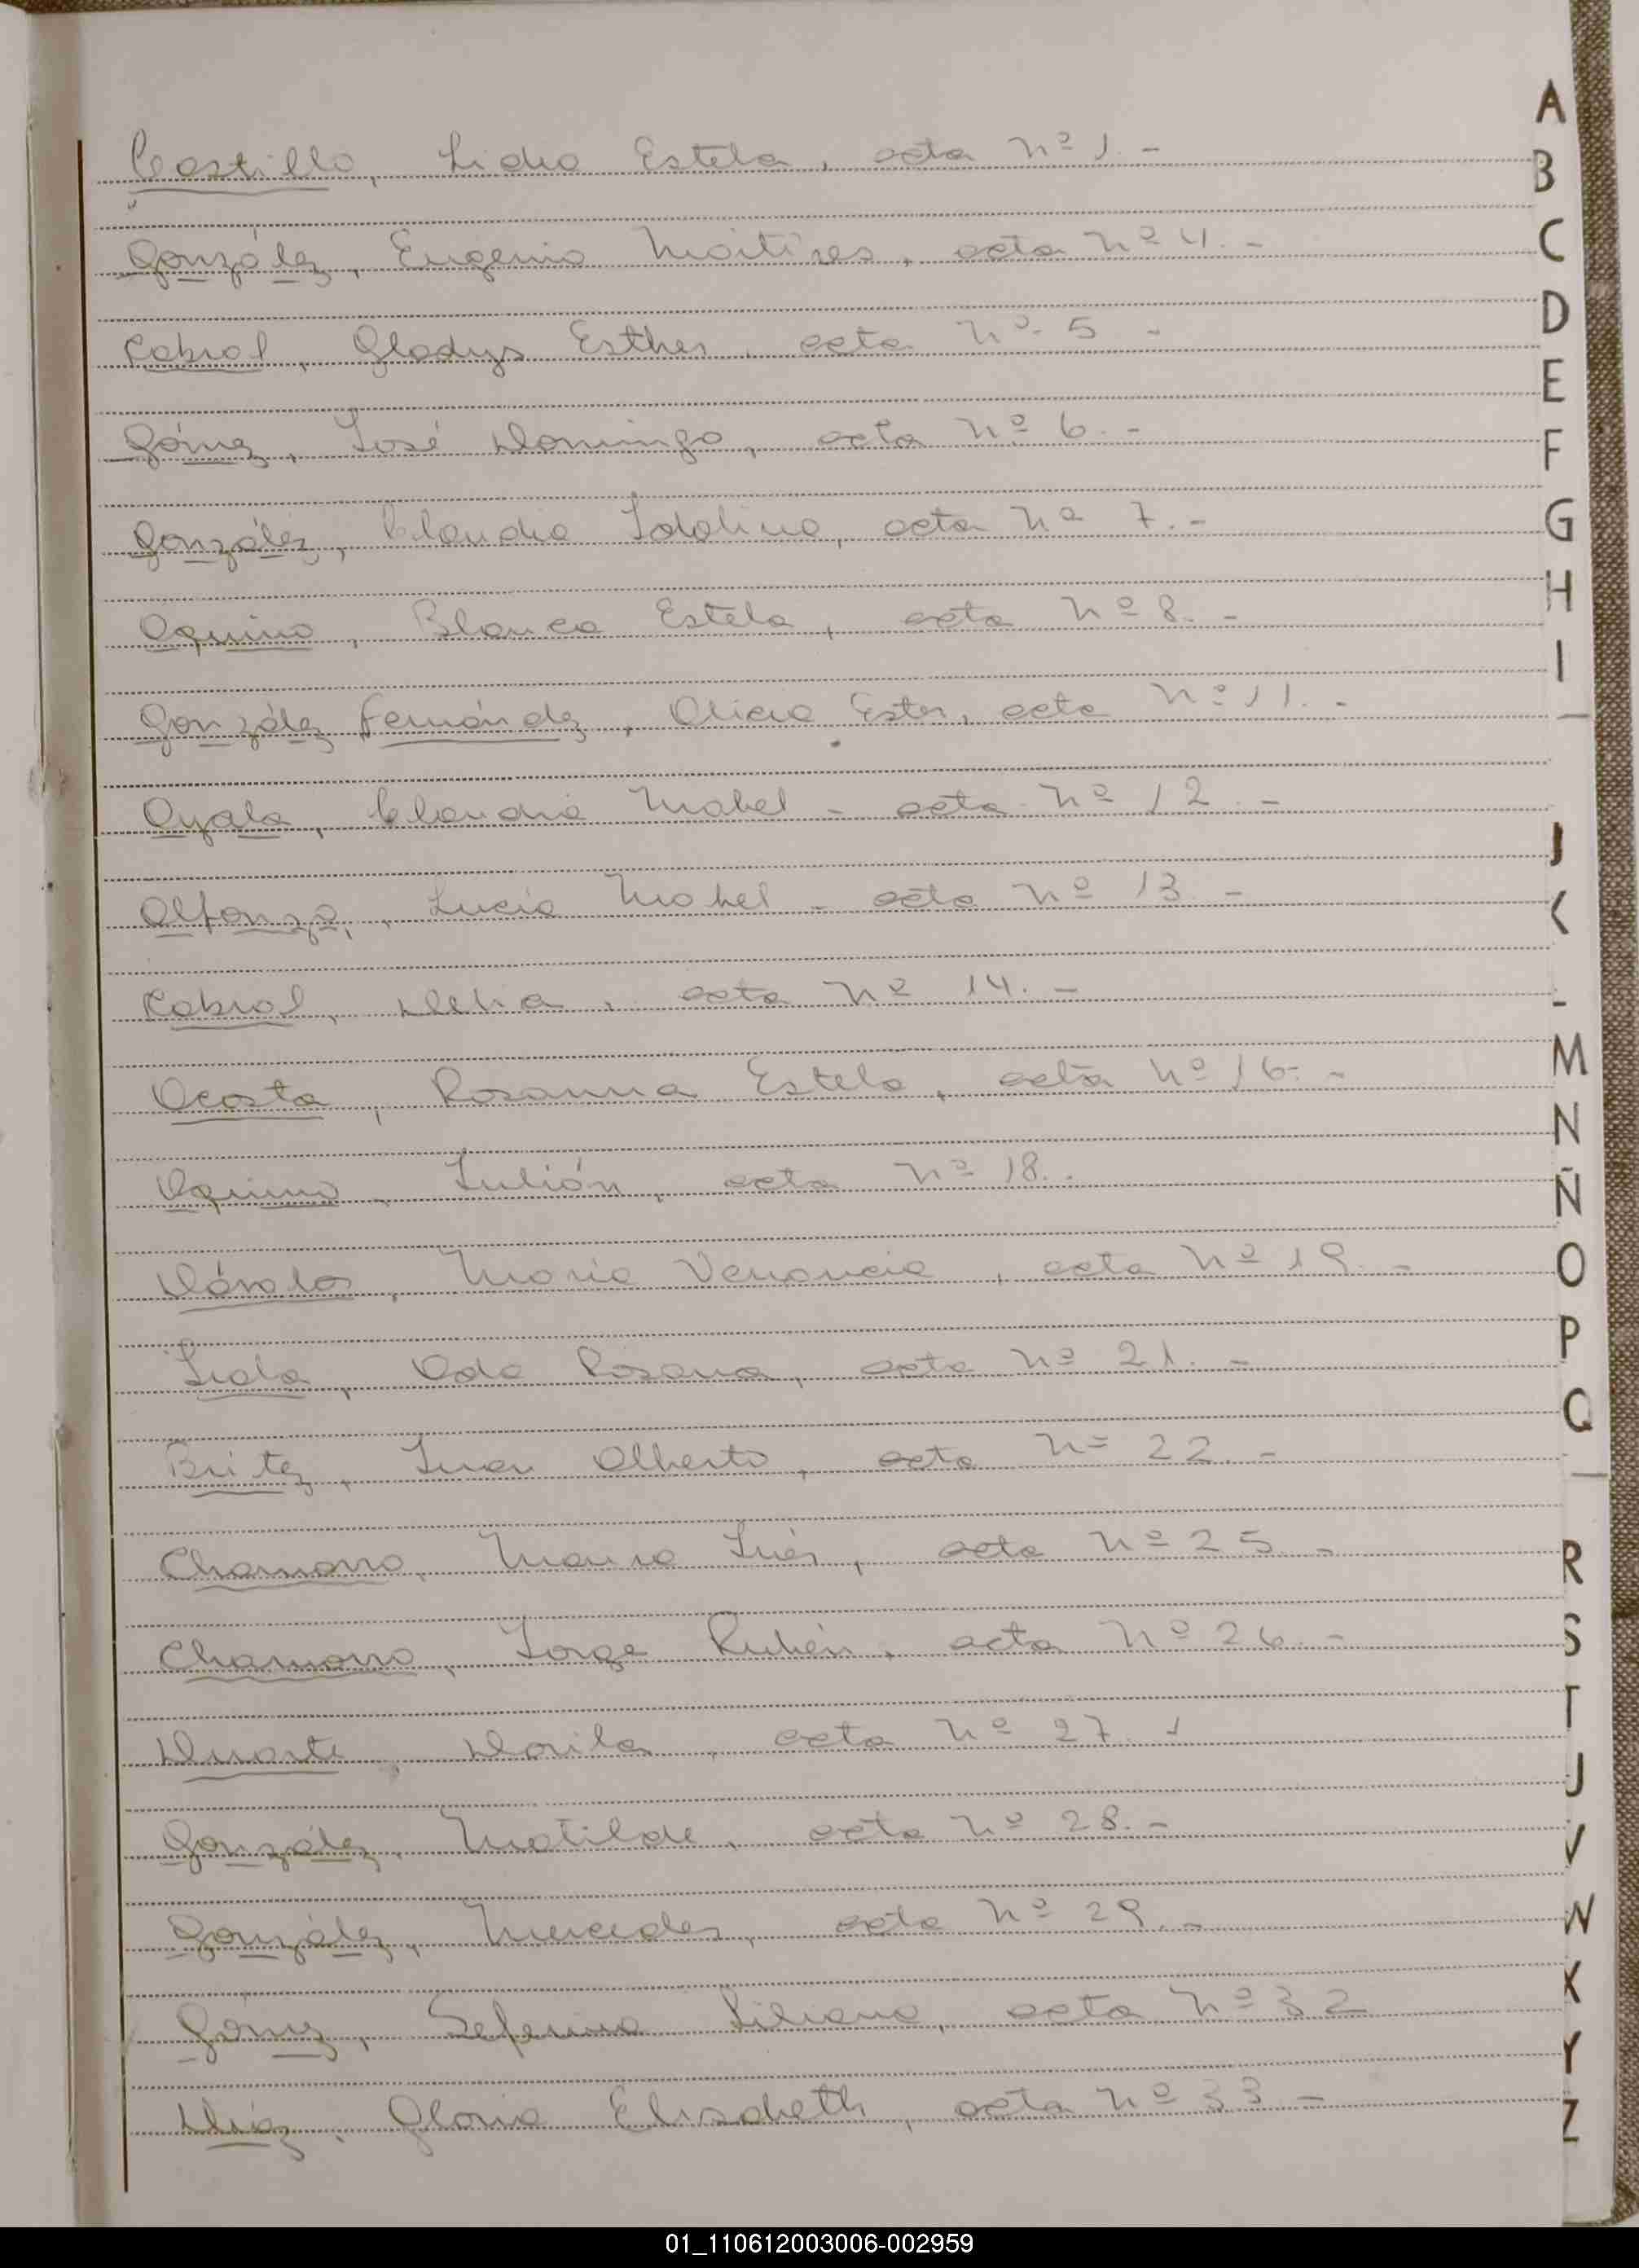 Castillo, Lidia Estela, acta nº 1.-
González, Eugenia acta nº 4.-
Cabral, Gladys Esther, acta nº 5 -
Gómez, José Domingo, acta nº 6.-
González, Claudia Idalina, acta nº 7.-
Aquino, Blanca Estela, acta nº 8.-
González Fernández, Alicia Ester, acta nº 11.-
Ayala, Claudia Mabel - acta nº 12.-
Alfonzo, Lucia Mabel - acta nº 13.-
Cabral, Delia, acta nº 14.-
Acosta, Rosanna Estela, acta nº 16.-
Aquino, Julián, acta nº 18.-
Dávalos, María Venancia, acta nº 19.-
Ada Rosana, acta nº 21.-
Britez, Juan Alberto, acta nº 22.-
Chamorro, Inés, acta nº 25.-
Chamorro, Jorge Rubén, acta nº 26.-
Duarte, Dorila, acta nº 27.-
González, Matilde, acta nº 28.-
González, Mercedes, acta nº 29.-
Gómez, Seferina Liliana, acta nº 32
Díaz, Gloria Elisabeth, acta nº 33 -
A
B
C
D
E
F
G
H
I
J
K
M
N
Ñ
O
P
Q
R
S
T
V
W
X
Y
Z
01_110612003006-002959